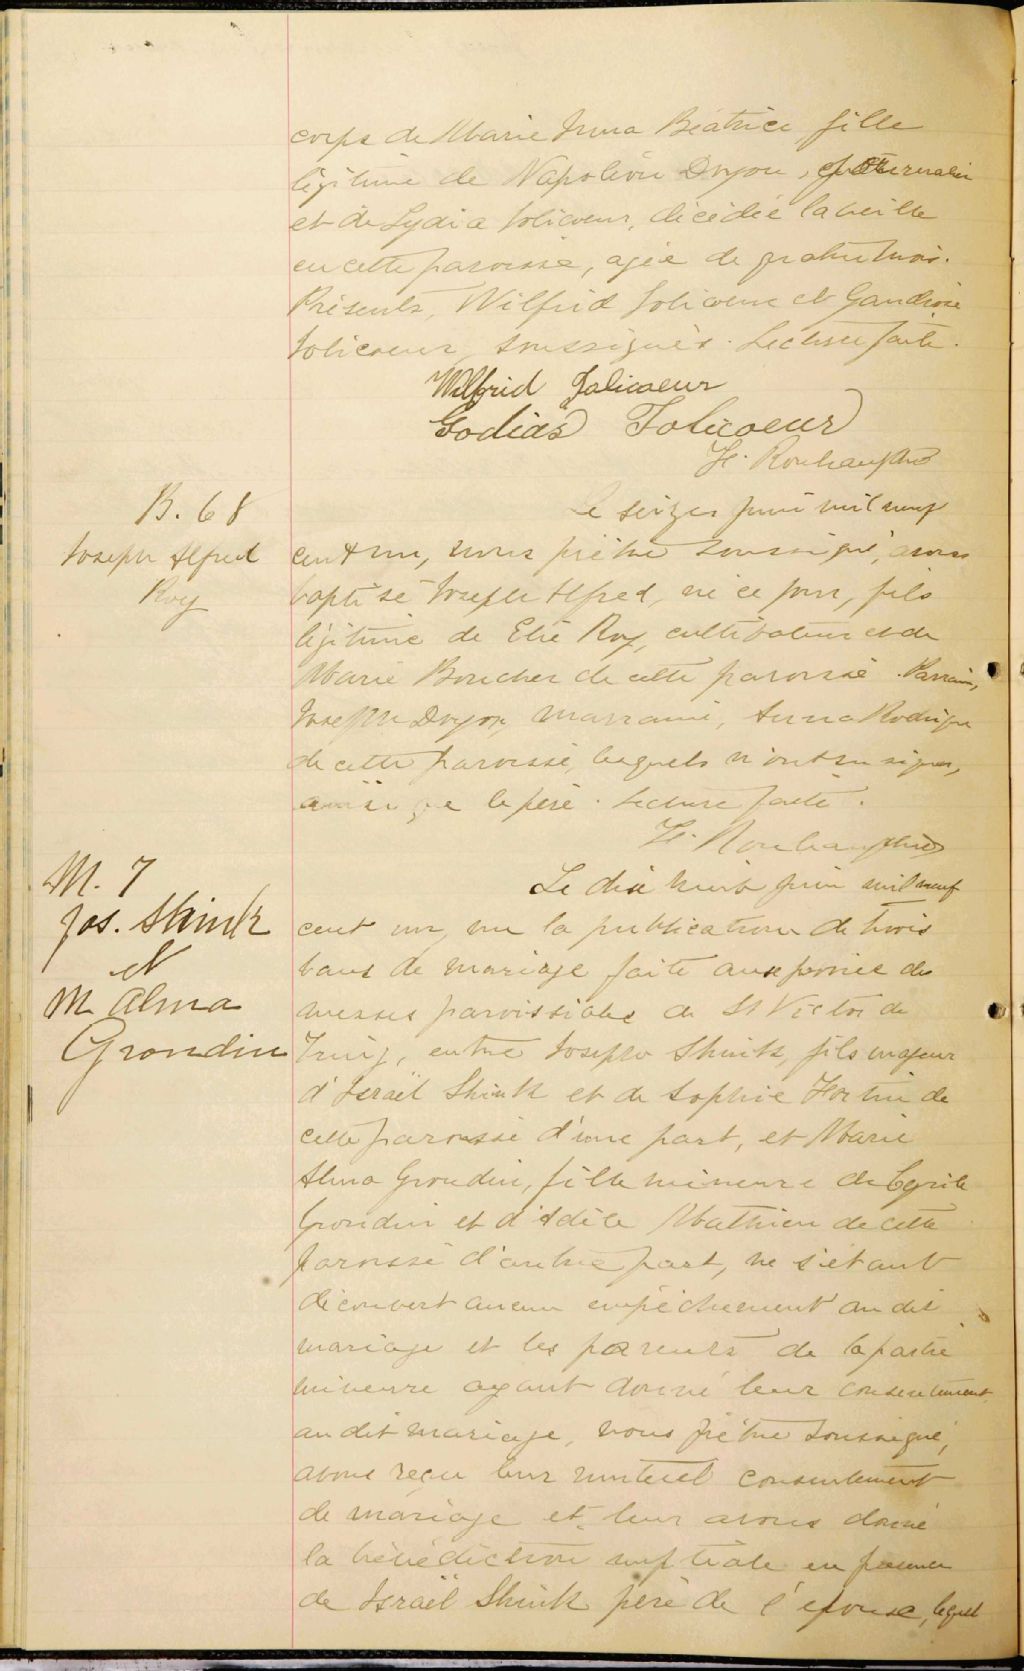 corps de Marie Irma Béatrice, fille
légitime de Napoléon Doyon, journalier
et de Lydia Jolicoeur, décédée la veille
en cette paroisse, agée de quatre mois.
Présents, Wilfrid Jolicoeur et Gaudiose
Jolicoeur, soussignés. Lecture faite.
Wilfrid Jolicoeur
Godias Jolicoeur
B. 68
Joseph Alfred
Roy
Le seize juin mil neuf
cent un, nous prêtre soussigné, avons
baptisé Joseph Alfred, né ce jour, fils
légitime de Elie Roy, cultivateur et de
Marie Boucher de cette paroisse. Parrain,
Joseph Doyon, marraine, Anna Rodrigue
de cette paroisse, lesquels n'ont su signer,
ainsi que le père. Lecture faite.
M. 7
Jos. Shink
et
M. Alma
Grondin
Le dix huit juin mil neuf
cent un, vu la publication de trois
bans de mariage faite aux prônes des
messes paroissiales de St Victor de
Tring, entre Joseph Shink, fils majeur
d'Israël Shink et de Sophie Fortin de
cette paroisse d'une part, et Marie
Alma Grondin, fille mineure de Cyrile
Grondin et d'Adèle Mathieu de cette
paroisse d'autre part, ne s'étant
découvert aucun empêchement au dit
mariage et les parents de la partie
mineure ayant donné leur consentement
au dit mariage, nous prêtre soussigné,
avons reçu leur mutuel consentement
de mariage et leur avons donné
la bénédiction nuptiale en présence
de Israël Shink père de l'épouse, lequel